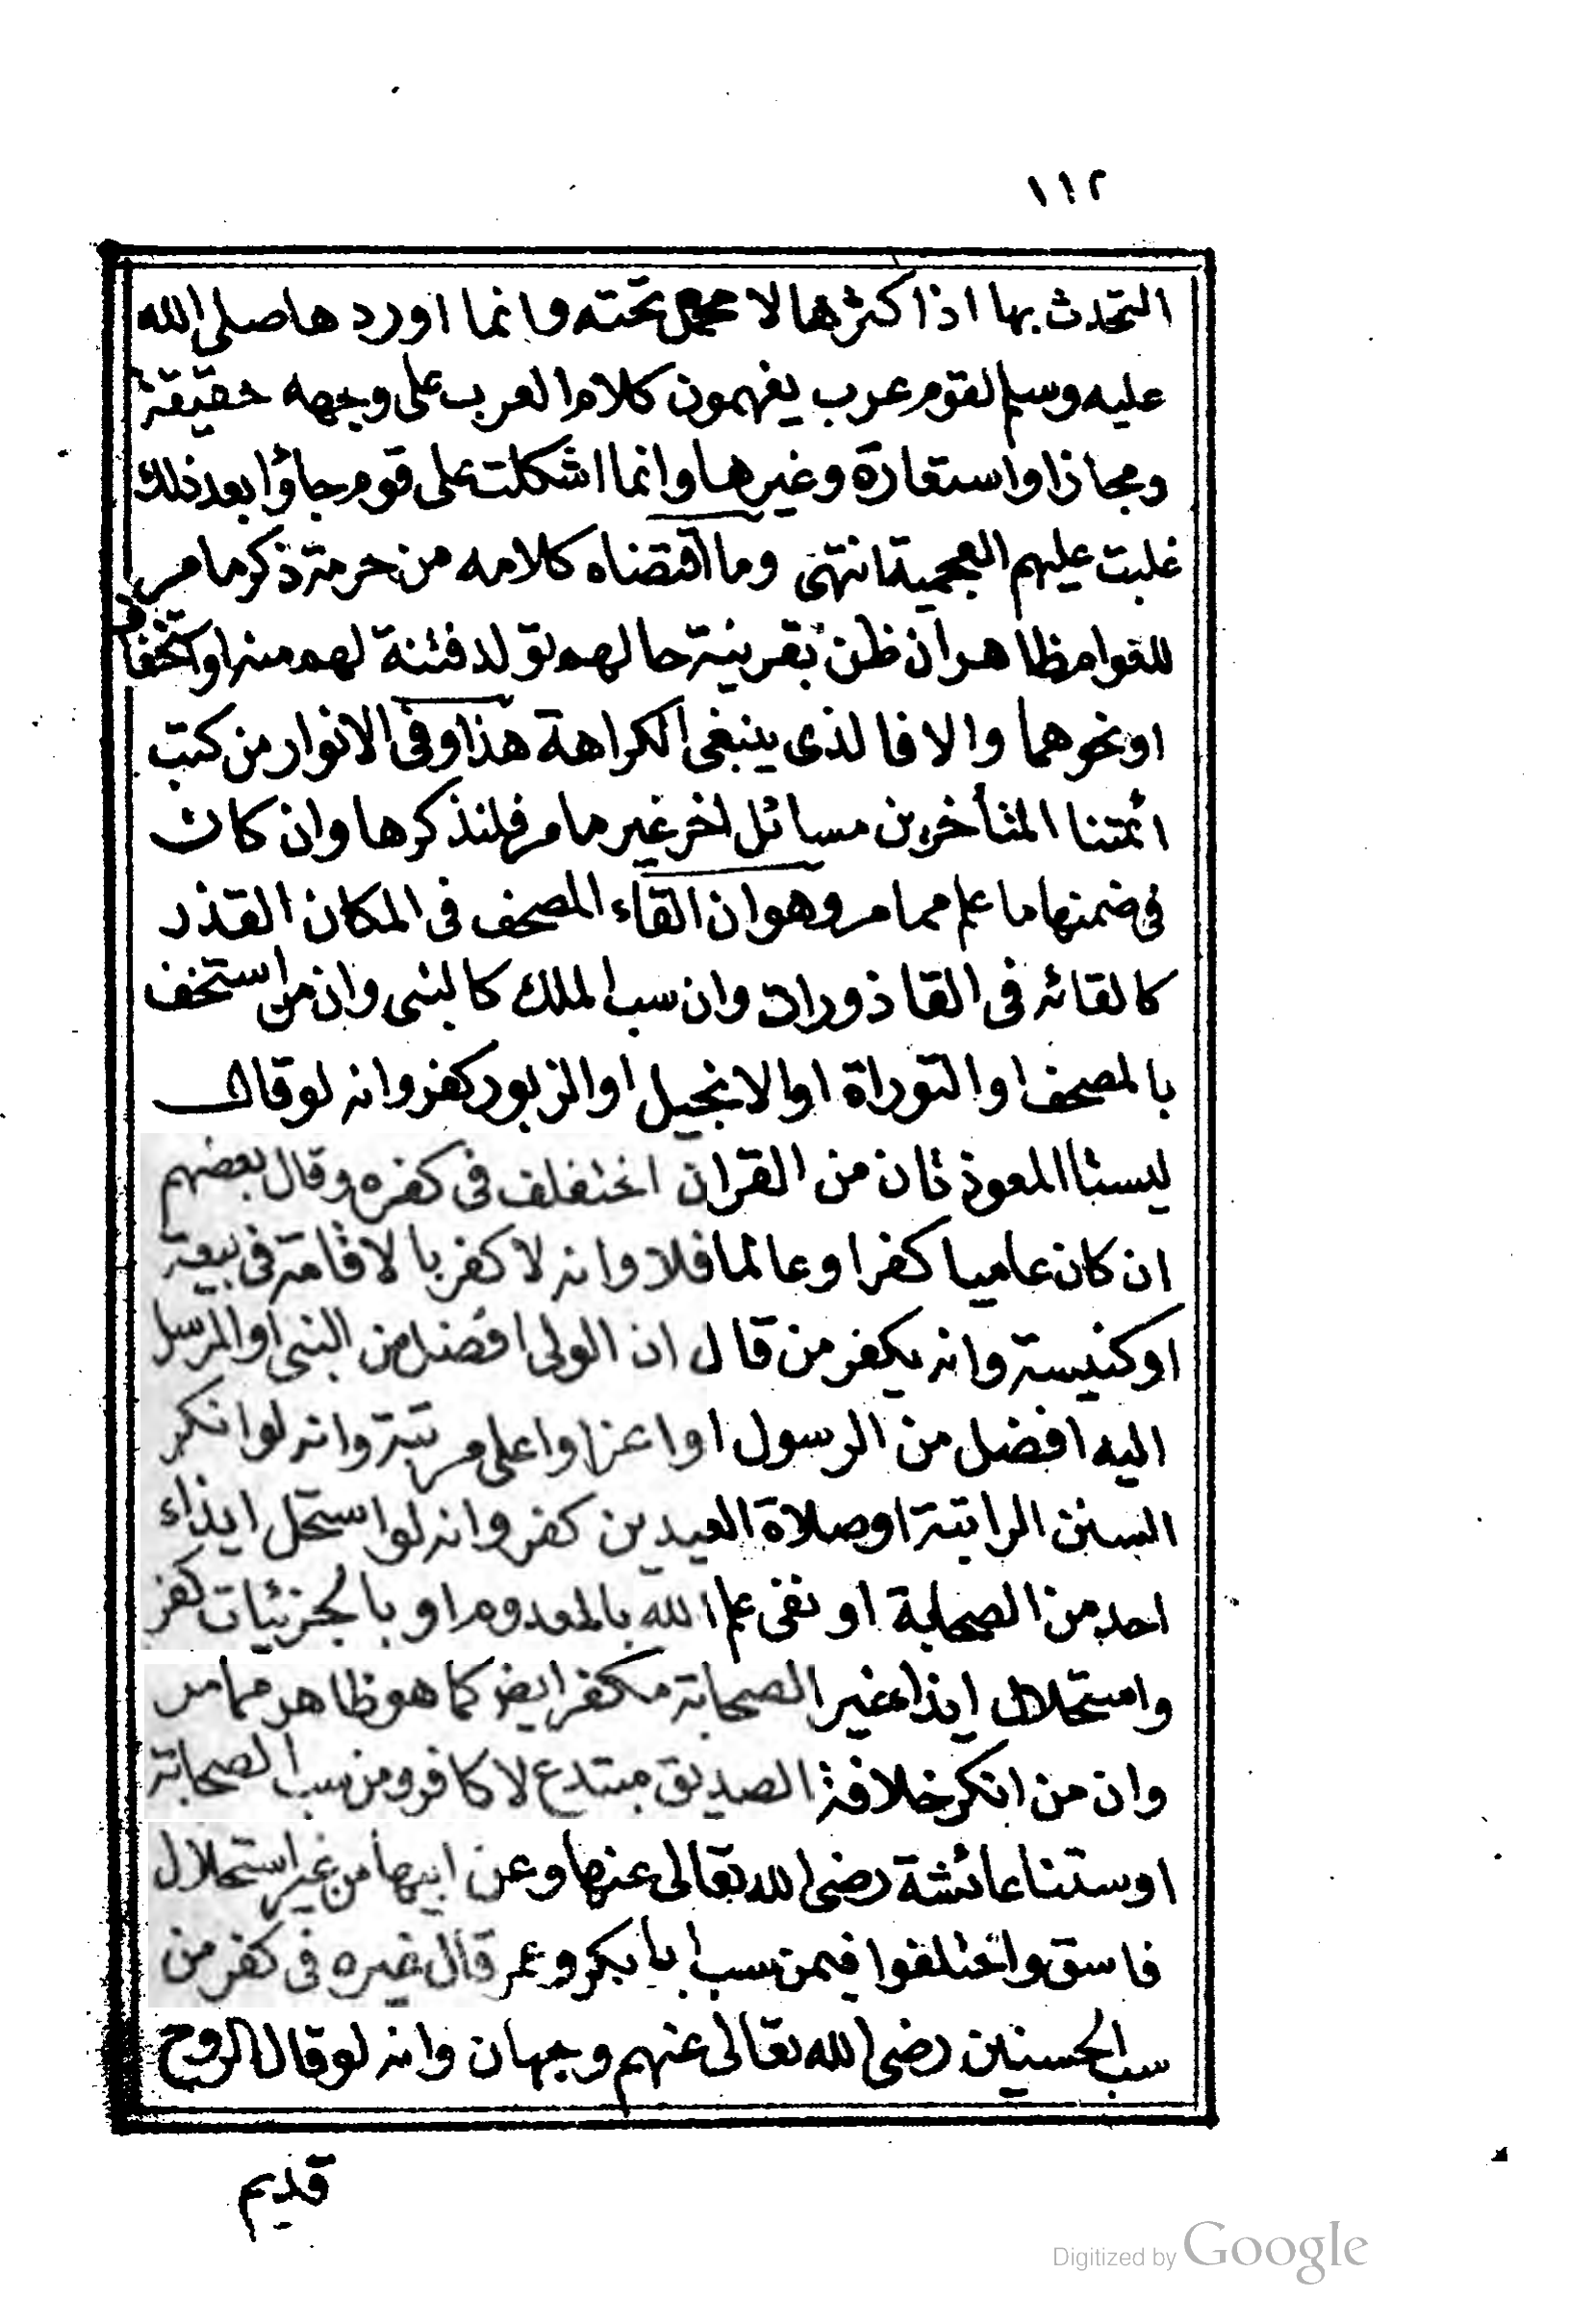 ١١٢
التحدث بها اذ اكثرها لا محمل تحته وانما اوردها صلى الله
عليه وسلم لقوم عرب يفهمون كلام العرب على وجهه حقيقة
ومجازا واستعارة وغيرها وانما اشكلت على قوم جاؤا بعد ذلك
غلبت عليهم العجمية انتهى وما اقتضاه كلامه من حرمة ذكر ما مر
للعوام ظاهر ان ظن بقرينة حالهم تولد فتنة لهم منه او استخفاف
او نحوهما والا فالذى ينبغى الكراهة هذا وفى الانوار من كتب
ائمتنا المتأخرين مسائل اخر غير ما مر فلنذكرها وان كان
فى ضمنها ما علم مما مر وهو ان القاء المصحف فى المكان القذر
كالقائه فى القاذورات وان سب الملك كالنبى وان من استخف
بالمصحف او التوراة او الانجيل او الزبور كفر وانه لو قال
ليستا المعوذتان من القران اختلف فى كفره وقال بعضهم
ان كان عاميا كفر او عالما فلا وانه لا كفر بالاقامة فى بيعة
او كنيسة وانه يكفر من قال ان الولى افضل من النبى او المرسل
اليه افضل من الرسول او اعز او اعلى مرتبة وانه لو انكر
السنن الراتبة او صلاة العيدين كفر وانه لو استحل ايذاء
احد من الصحابة او نفى علم الله بالمعدوم او بالجزئيات كفر
واستحلال ايذاء غير الصحابة مكفر ايضا كما هو ظاهر مما مر
وان من انكر خلافة الصديق مبتدع لا كافر ومن سب الصحابة
او ستنا عائشة رضى الله تعالى عنها وعن ابيها من غير استحلال
فاسق واختلفوا فيمن سب ابا بكر وعمر قال غيره فى كفر من
سب الحسنين رضى الله تعالى عنهم وجهان وانه لو قال الروح
قديم
Digitized by Google